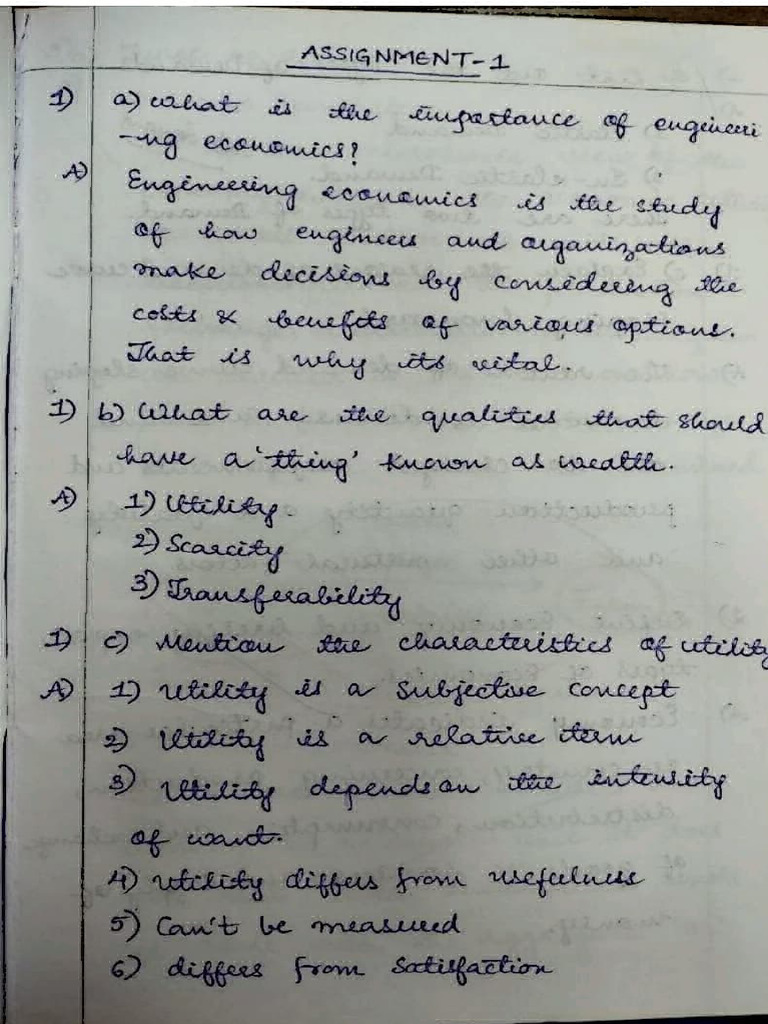 ASSIGNMENT-1
1) a) What is the importance of engineeri
-ng economics?
A) Engineering economics is the study
of how engineers and organizations
make decisions by considering the
costs & benefits of various options.
That is why its vital.
1) b) What are the qualities that should
have a 'thing' known as wealth.
A) 1) Utility
2) Scarcity
3) Transferability
1) c) Mention the characteristics of utility
A) 1) Utility is a subjective concept
2) Utility is a relative term
3) Utility depends on the intensity
of want.
4) Utility differs from usefulness
5) Can't be measured
6) differs from satisfaction